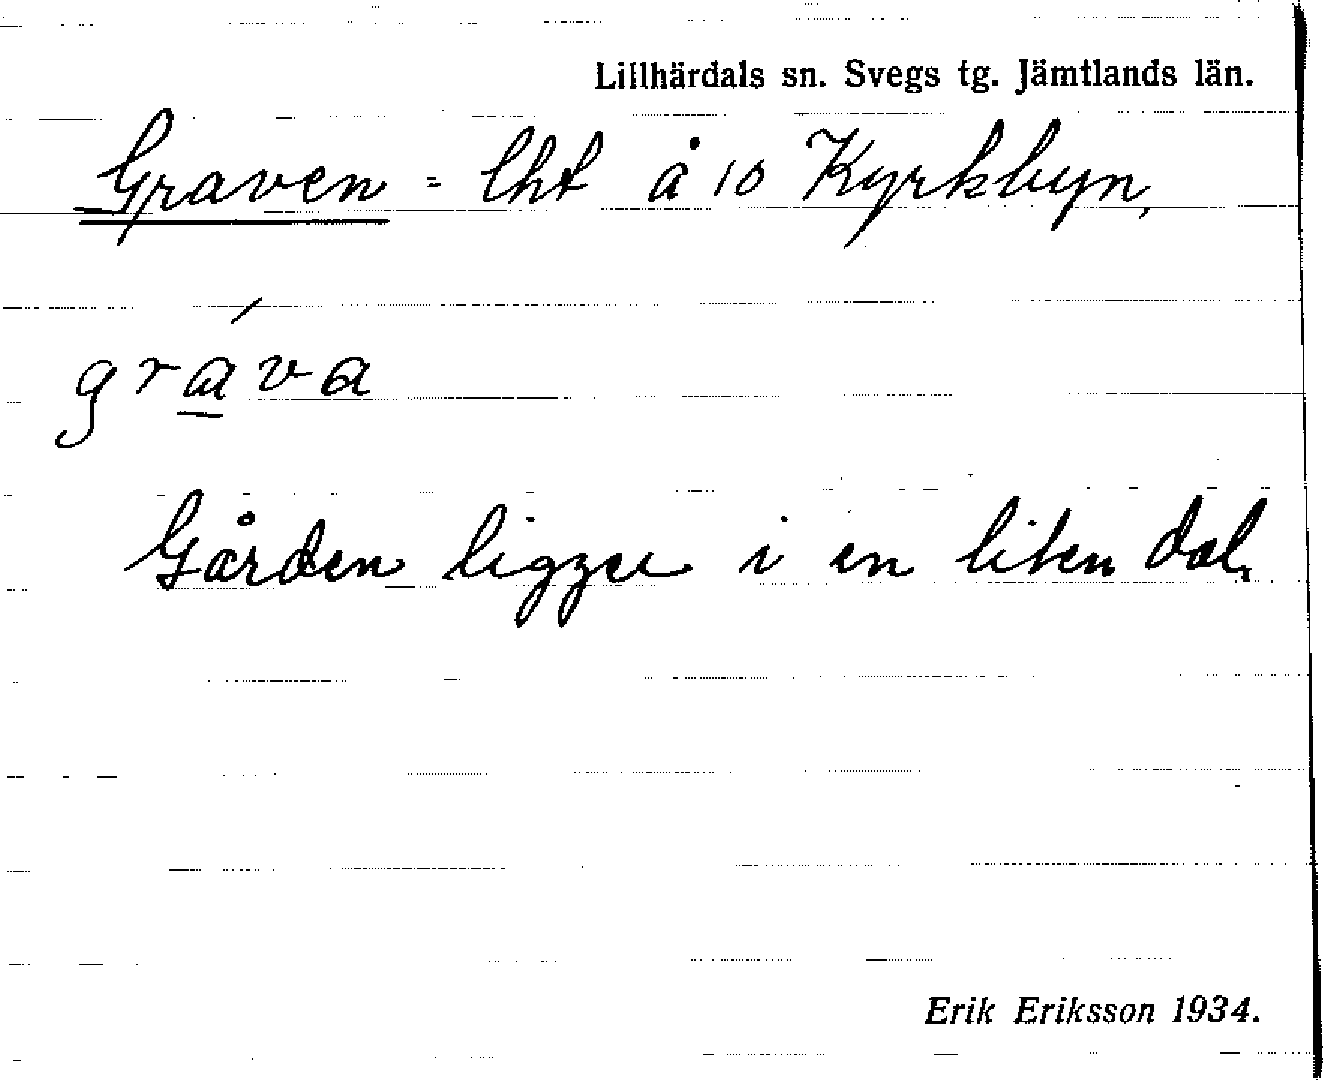 Lillhärdals sn. Svegs tg. Jämtlands län.
Graven = lht å 10 Kyrkbyn,
gráva
Gården ligger i en liten dal.
Erik Eriksson 1934.